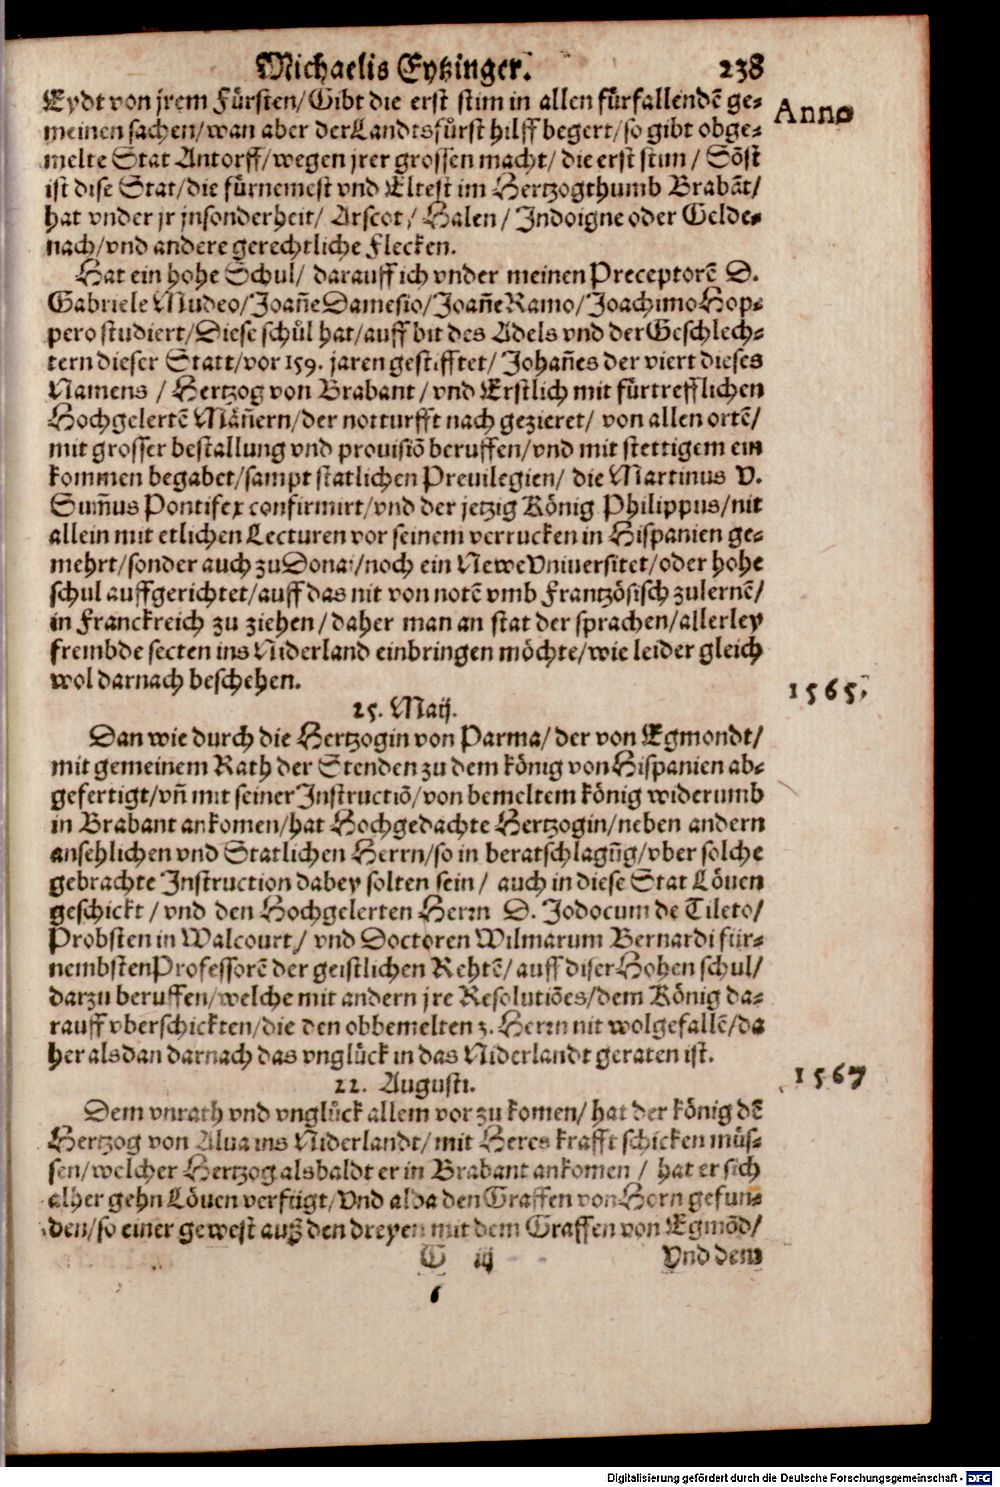 Michaelis Eytzinger. 238
Anno
Eydt von jrem Fürsten/Gibt die erst stim in allen fürfallendē ge-
meinen sachen/wan aber der Landtsfürst hilff begert/so gibt obge-
melte Stat Antorff/wegen jrer grossen macht/die erst stim/Sōst
ist dise Stat/die fürnemest vnd Eltest im Hertzogthumb Brabāt/
hat vnder jr jnsonderheit/ Arscot/Halen/Indoigne oder Gelde-
nach/vnd andere gerechtliche Flecken.
Hat ein hohe Schul/ darauff ich vnder meinen Preceptorē D.
Gabriele Mudeo/Joañe Damesio/Joañe Ramo/Joachimo Hop-
pero studiert/Diese schül hat/auff bit des Adels vnd der Geschlech-
tern dieser Statt/vor 159. jaren gestifftet/Johañes der viert dieses
Namens/Hertzog von Brabant/vnd Erstlich mit fürtrefflichen
Hochgelertē Mäñern/der notturfft nach gezieret/ von allen ortē/
mit grosser bestallung vnd prouisiō beruffen/vnd mit stettigem ein
kommen begabet/sampt statlichen Preuilegien/ die Martinus V.
Sum̄us Pontifex confirmirt/vnd der jetzig König Philippus/nit
allein mit etlichen Lecturen vor seinem verrucken in Hispanien ge-
mehrt/sonder auch zu Dona/noch ein Newe Vniuersitet/oder hohe
schul auffgerichtet/auff das nit von notē vmb Frantzösisch zulernē/
in Franckreich zu ziehen/daher man an stat der sprachen/allerley
frembde secten ins Niderland einbringen möchte/wie leider gleich
wol darnach beschehen.
1565.
25. Maij.
Dan wie durch die Hertzogin von Parma/der von Egmondt/
mit gemeinem Rath der Stenden zu dem könig von Hispanien ab-
gefertigt/vñ mit seiner Instructiō/von bemeltem könig widerumb
in Brabant ankomen/hat Hochgedachte Hertzogin/neben andern
ansehlichen vnd Statlichen Herrn/so in beratschlagūg/vber solche
gebrachte Instruction dabey solten sein/ auch in diese Stat Löuen
geschickt/vnd den Hochgelerten Herrn D. Jodocum de Tileto/
Probsten in Walcourt/ vnd Doctoren Wilmarum Bernardi für-
nembsten Professorē der geistlichen Rehtē/auff diser Hohen schul/
darzu beruffen/welche mit andern jre Resolutiōes/dem König da-
rauff vberschickten/die den obbemelten 3. Herrn nit wolgefallē/da
her alsdan darnach das vnglück in das Niderlandt geraten ist.
1567
22. Augusti.
Dem vnrath vnd vnglück allem vor zu komen/hat der könig dē
Hertzog von Alua ins Niderlandt/mit Heres krafft schicken müs-
sen/welcher Hertzog alsbaldt er in Brabant ankomen/ hat er sich
alher gehn Löuen verfügt/Vnd alda den Graffen von Horn gefun-
den/so einer gewest auß den dreyen mit dem Graffen von Egmōd/
G iij Vnd dem
6
Digitalisierung gefördert durch die Deutsche Forschungsgemeinschaft - DFG